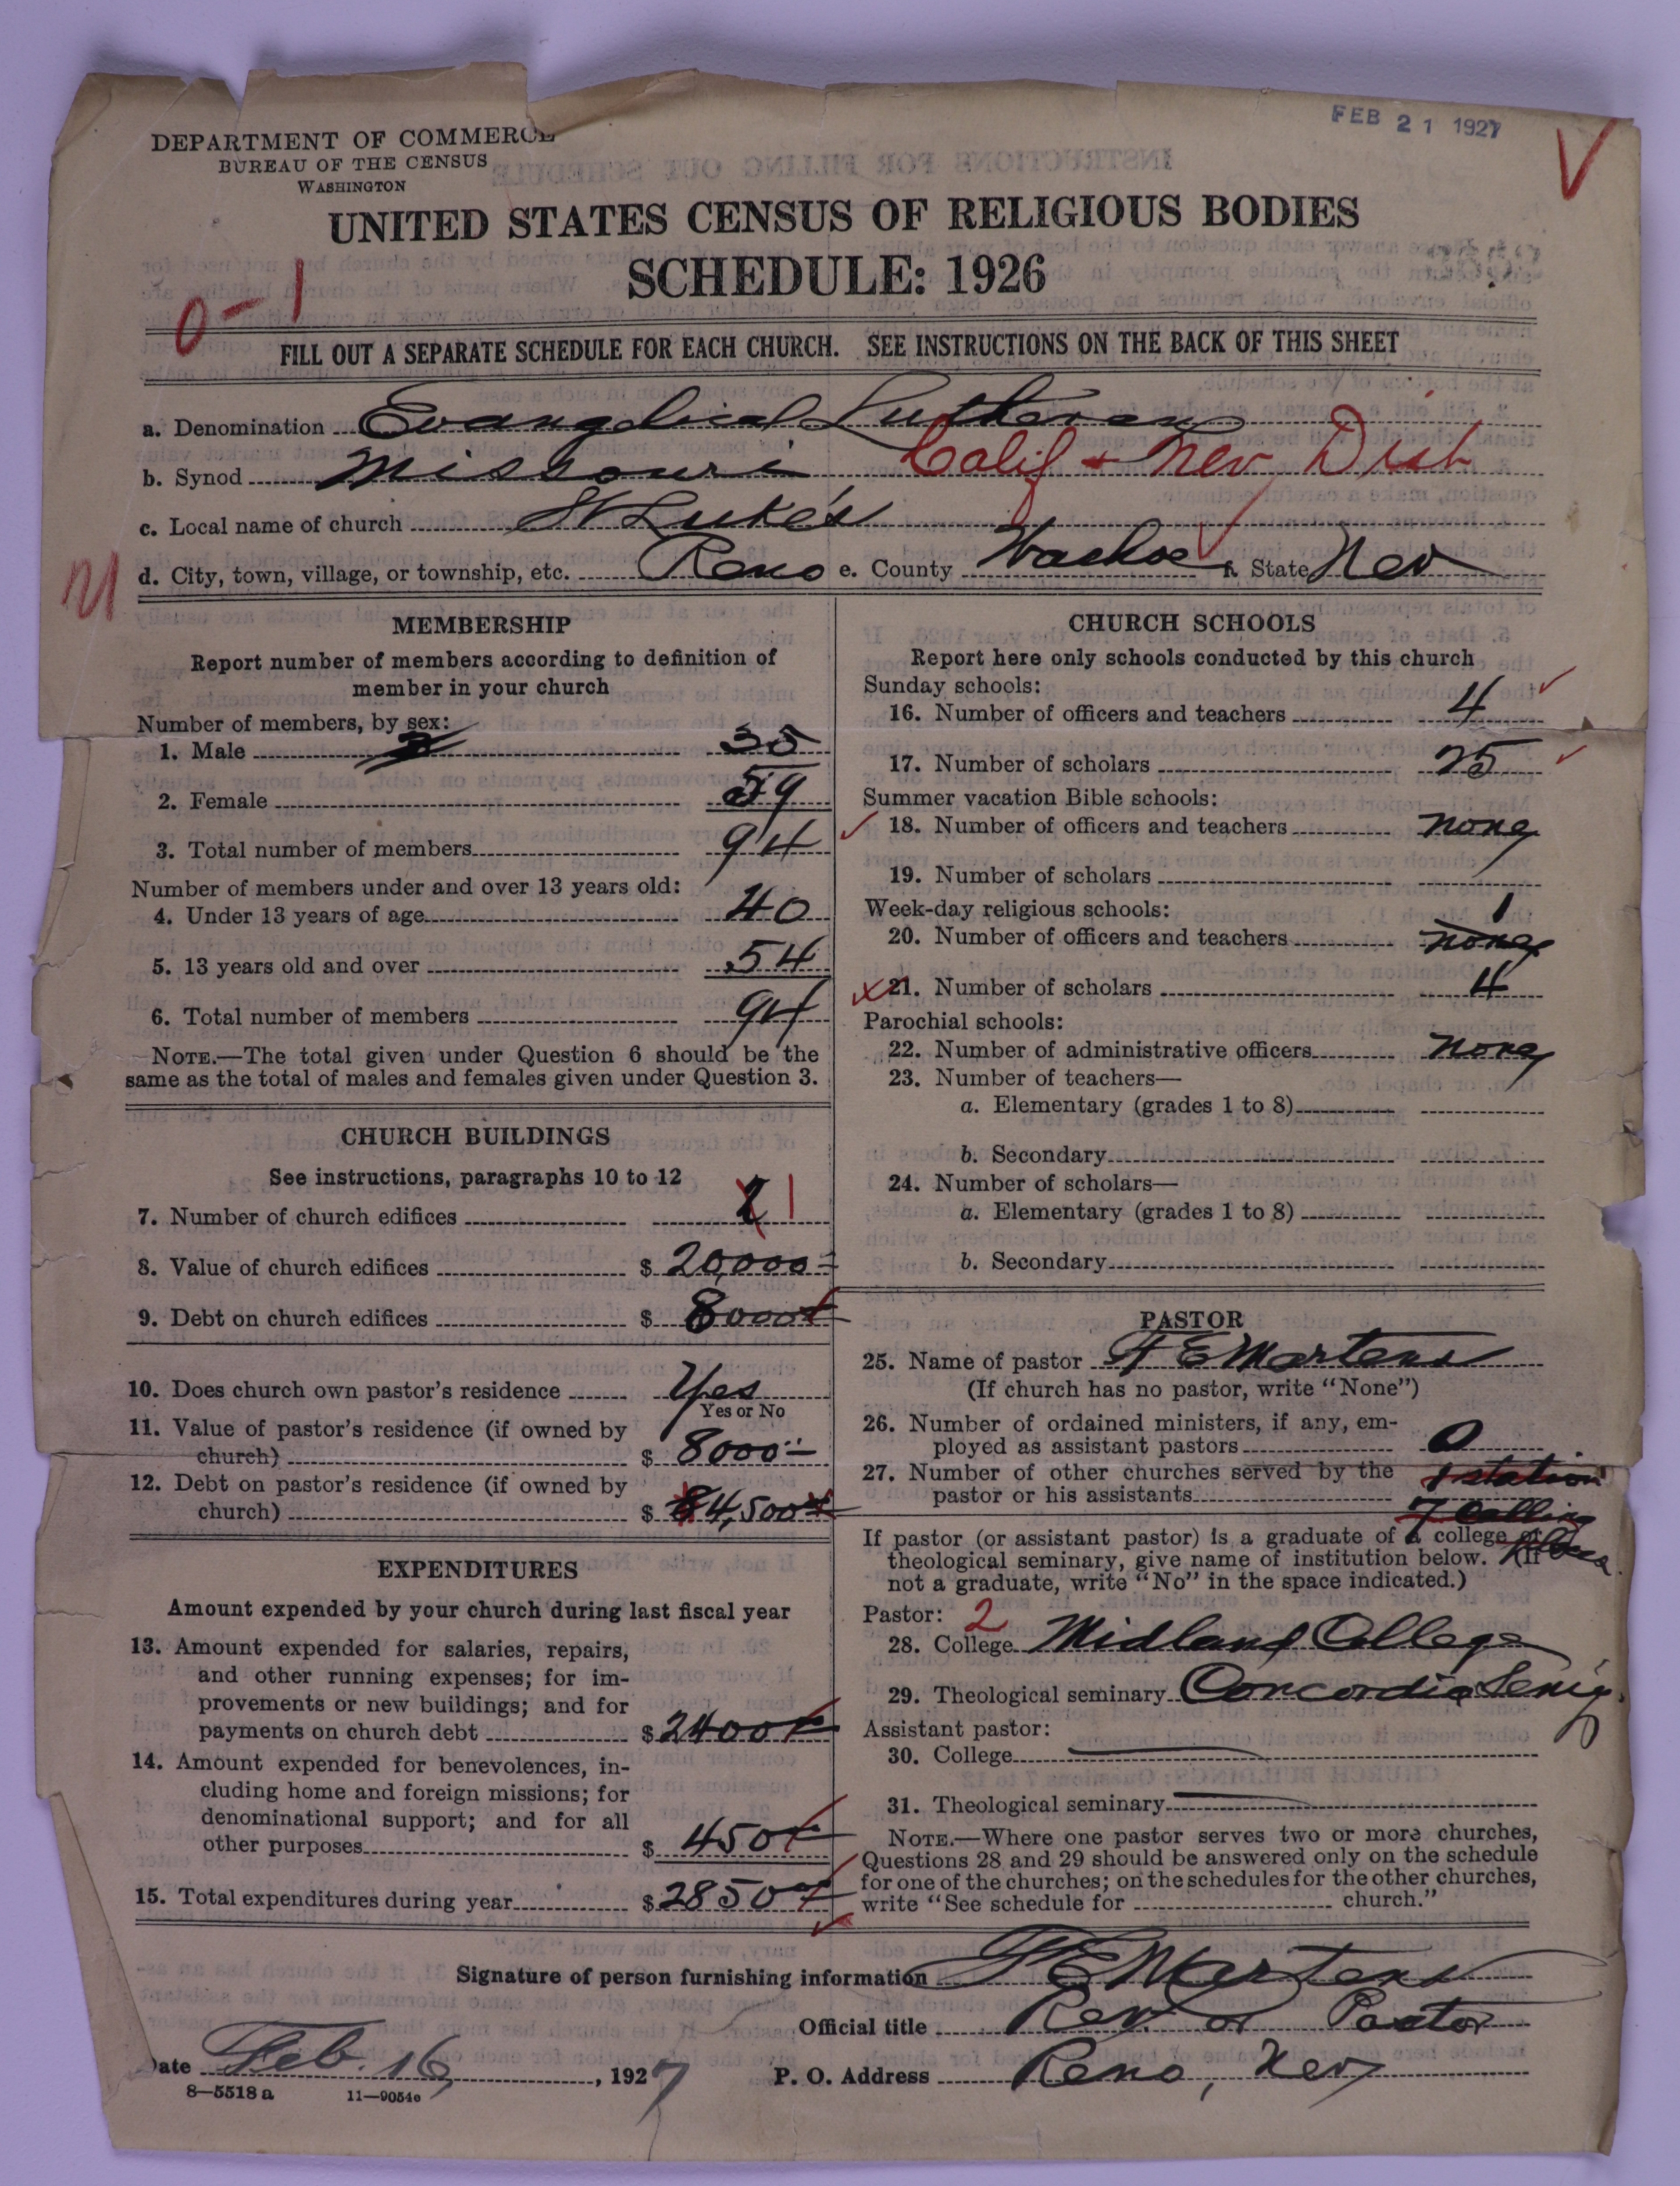 FEB 21 1927
DEPARTMENT OF COMMERCE
BUREAU OF THE CENSUS
WASHINGTON
UNITED STATES CENSUS OF RELIGIOUS BODIES
SCHEDULE: 1926
0-1
FILL OUT A SEPARATE SCHEDULE FOR EACH CHURCH. SEE INSTRUCTIONS ON THE BACK OF THIS SHEET
a. Denomination Evangelical Lutheran
b. Synod Missouri Calif + Nev Dist
c. Local name of church St Luke's
d. City, town, village, or township, etc. Reno e. County Washoe f. State Nev
MEMBERSHIP
Report number of members according to definition of
member in your church
Number of members, by sex:
1. Male 35
2. Female 59
3. Total number of members 94
Number of members under and over 13 years old:
4. Under 13 years of age 40
5. 13 years old and over 54
6. Total number of members 94
NOTE.—The total given under Question 6 should be the
same as the total of males and females given under Question 3.
CHURCH BUILDINGS
See instructions, paragraphs 10 to 12
7. Number of church edifices 1
8. Value of church edifices $ 20,000
9. Debt on church edifices $ 8000
10. Does church own pastor's residence Yes
Yes or No
11. Value of pastor's residence (if owned by
church) $ 8000
12. Debt on pastor's residence (if owned by
church) $ 4,500
EXPENDITURES
Amount expended by your church during last fiscal year
13. Amount expended for salaries, repairs,
and other running expenses; for im-
provements or new buildings; and for
payments on church debt $ 2400
14. Amount expended for benevolences, in-
cluding home and foreign missions; for
denominational support; and for all
other purposes $ 450
15. Total expenditures during year $ 2850
CHURCH SCHOOLS
Report here only schools conducted by this church
Sunday schools:
16. Number of officers and teachers 4
17. Number of scholars 25
Summer vacation Bible schools:
18. Number of officers and teachers none
19. Number of scholars
Week-day religious schools:
20. Number of officers and teachers none 1
21. Number of scholars 4
Parochial schools:
22. Number of administrative officers none
23. Number of teachers—
a. Elementary (grades 1 to 8)
b. Secondary
24. Number of scholars—
a. Elementary (grades 1 to 8)
b. Secondary
PASTOR
25. Name of pastor F E Martens
(If church has no pastor, write "None")
26. Number of ordained ministers, if any, em-
ployed as assistant pastors 0
27. Number of other churches served by the
pastor or his assistants 1 station
7 calling
If pastor (or assistant pastor) is a graduate of a college or
theological seminary, give name of institution below. (If
not a graduate, write "No" in the space indicated.)
Pastor: 2
28. College Midland College
29. Theological seminary Concordia
Assistant pastor:
30. College
31. Theological seminary
NOTE.—Where one pastor serves two or more churches,
Questions 28 and 29 should be answered only on the schedule
for one of the churches; on the schedules for the other churches,
write "See schedule for church."
Signature of person furnishing information F E Martens
Official title Rev. or Pastor
Date Feb. 16, 1927 P. O. Address Reno, Nev
8—5518 a 11—9054e